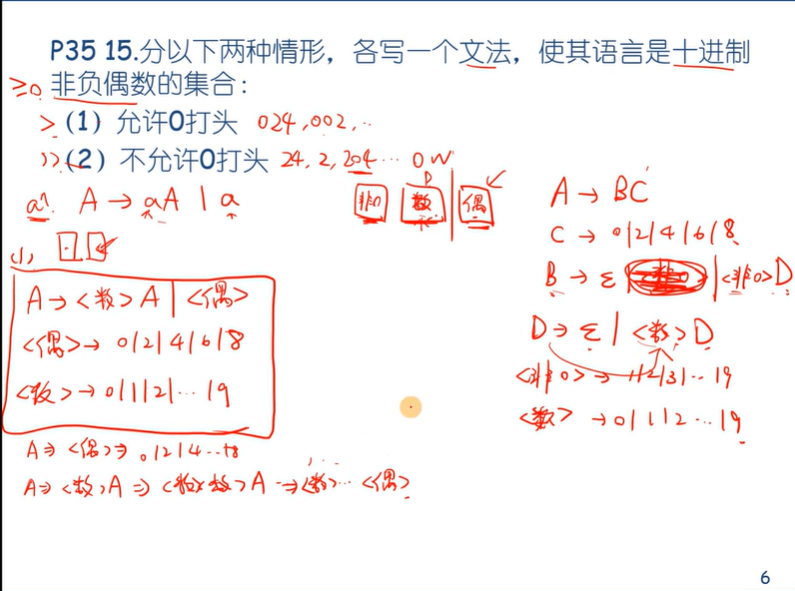 P35 15.分以下两种情形，各写一个文法，使其语言是十进制
≥0 非负偶数的集合：
>（1）允许0打头 024,002,..
（2）不允许0打头 24,2,204... 0
aⁿ A → aA | a
非0 数 偶
(1)
A → <数>A | <偶>
<偶> → 0|2|4|6|8
<数> → 0|1|2|...|9
A ⇒ <偶> ⇒ 0|2|4...|8
A ⇒ <数>A ⇒ <数><数>A ⇒ <数>... <偶>
A → BC
C → 0|2|4|6|8
B → ε | <非0>D
D → ε | <数>D
<非0> → 1|2|3|...|9
<数> → 0|1|2...|9
6